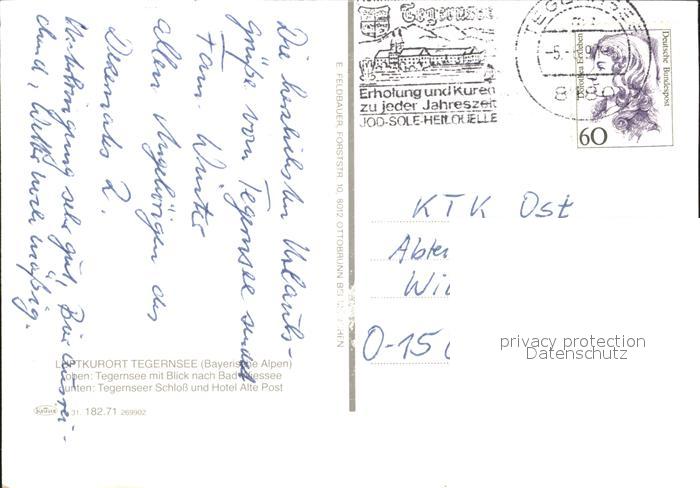 Die herzlichsten Urlaubs-
grüße vom Tegernsee sendet
Fam. Winter
allen Angehörigen des
Dezernates 2.
Unterbringung sehr gut, Bier ausrei-
chend, Wetter mäßig.
LUFTKURORT TEGERNSEE (Bayerische Alpen)
oben: Tegernsee mit Blick nach Bad Wiessee
unten: Tegernseer Schloß und Hotel Alte Post
31. 182.71 269902
E. FELDBAUER, FORSTSTR. 10, 8012 OTTOBRUNN BEI MÜNCHEN
Tegernsee
Erholung und Kuren
zu jeder Jahreszeit
JOD-SOLE-HEILQUELLE
TEGERNSEE
8180
Deutsche Bundespost
60
KTK Ost
Abte
Wil
O-15
privacy protection
Datenschutz